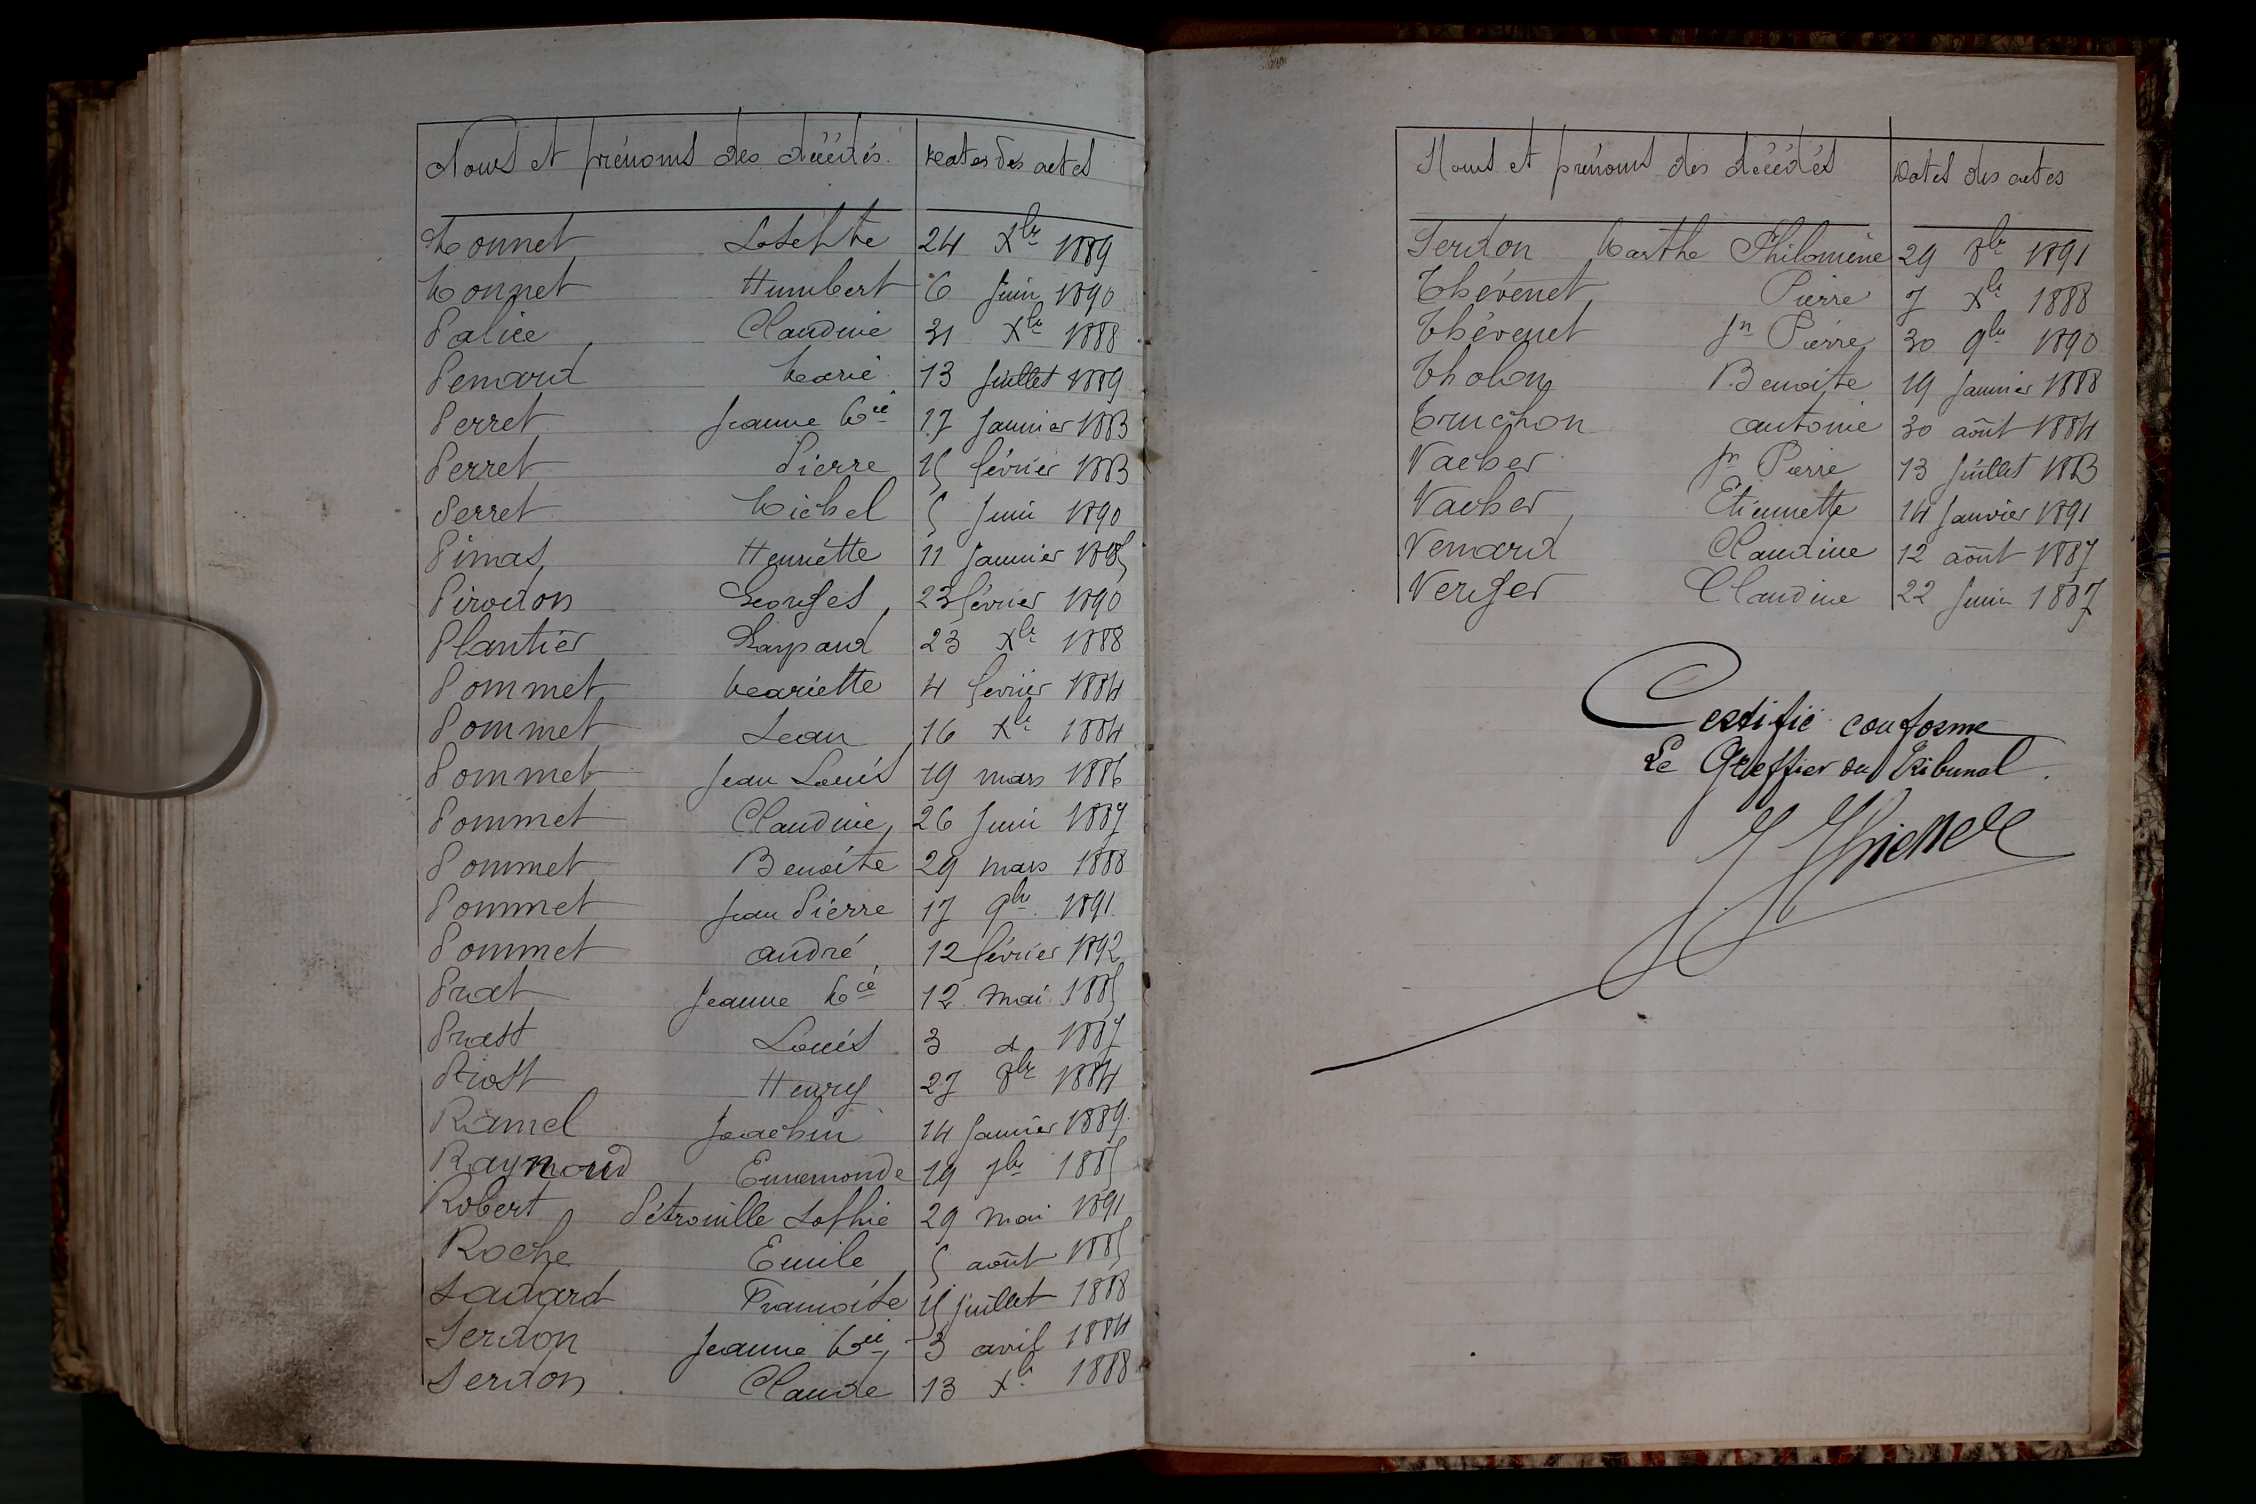 Noms et prénoms des décédés. Dates des actes
Monnet Josephte 24 Xbr 1889
Monnet Humbert 6 Juin 1890
Palice Claudine 31 Xbr 1888
Penard Marie 13 Juillet 1889
Perret Jeanne Mie 17 Janvier 1883
Perret Pierre 15 février 1883
Perret Michel 5 Juin 1890
Pimas Henriette 11 Janvier 1885
Pirodon Georges 23 février 1890
Plantier Gaspard 23 Xbr 1888
Pommet Mariette 4 février 1884
Pommet Jean 16 Xbr 1884
Pommet Jean Louis 19 mars 1886
Pommet Claudine 26 Juin 1887
Pommet Benoite 29 mars 1888
Pommet Jean Pierre 17 9br 1891
Pommet andré 12 février 1892
Prat Jeanne Mie 12 mai 1885
Prast Louis 3 d 1887
Prost Henry 27 8br 1884
Ramel Joachin 14 Janvier 1889
Raymond Ennemonde 19 7br 1885
Robert Pétronille Sophie 29 mai 1891
Roche Emile 5 août 1885
Sadard Françoise 15 Juillet 1888
Serdon Jeanne Mie 3 avril 1884
Serdon Claude 13 Xbr 1888
Noms et prénoms des décédés Dates des actes
Serdon Marthe Philomène 29 8br 1891
Thévenet Pierre 7 Xbr 1888
Thévenet Jn Pierre 30 9br 1890
Tholon Benoite 19 Janvier 1888
Truchon antoine 30 août 1884
Vacher Jn Pierre 13 Juillet 1883
Vacher Etiennette 14 Janvier 1891
Vemard Claudine 12 août 1887
Verger Claudine 22 Juin 1887
Certifié conforme
Le Greffier du Tribunal.